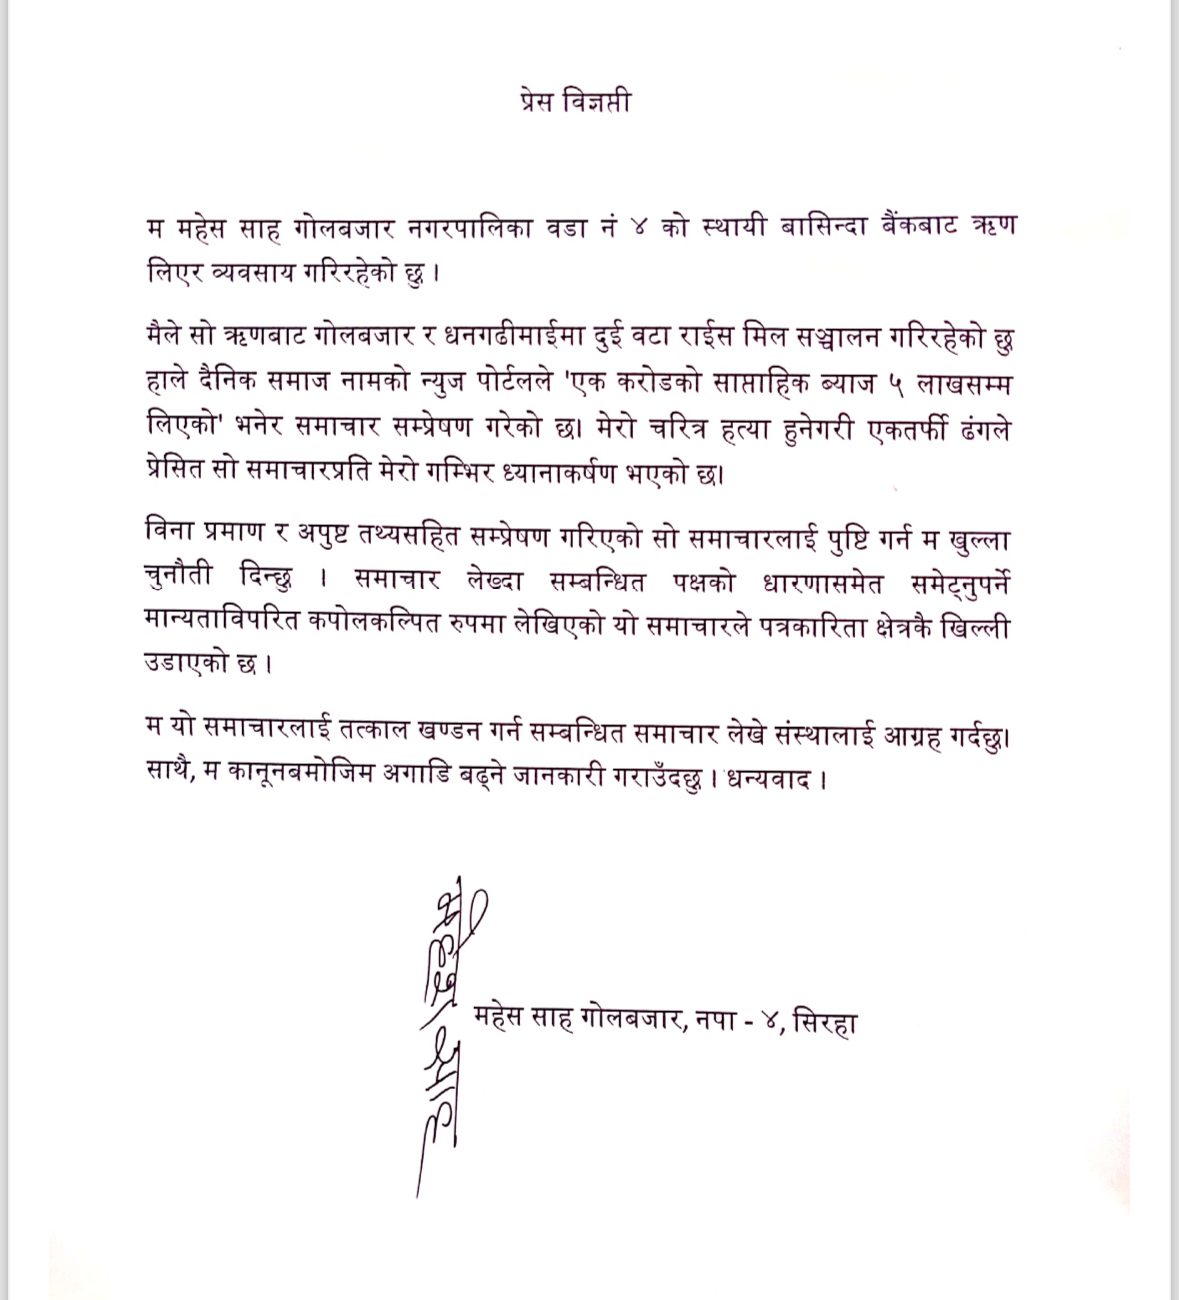 प्रेस विज्ञप्ती
म महेस साह गोलबजार नगरपालिका वडा नं ४ को स्थायी बासिन्दा बैंकबाट ऋण
लिएर व्यवसाय गरिरहेको छु ।
मैले सो ऋणबाट गोलबजार र धनगढीमाईमा दुई वटा राईस मिल सञ्चालन गरिरहेको छु
हाले दैनिक समाज नामको न्युज पोर्टलले 'एक करोडको साप्ताहिक ब्याज ५ लाखसम्म
लिएको' भनेर समाचार सम्प्रेषण गरेको छ। मेरो चरित्र हत्या हुनेगरी एकतर्फी ढंगले
प्रेसित सो समाचारप्रति मेरो गम्भिर ध्यानाकर्षण भएको छ।
विना प्रमाण र अपुष्ट तथ्यसहित सम्प्रेषण गरिएको सो समाचारलाई पुष्टि गर्न म खुल्ला
चुनौती दिन्छु । समाचार लेख्दा सम्बन्धित पक्षको धारणासमेत समेट्नुपर्ने
मान्यताविपरित कपोलकल्पित रुपमा लेखिएको यो समाचारले पत्रकारिता क्षेत्रकै खिल्ली
उडाएको छ ।
म यो समाचारलाई तत्काल खण्डन गर्न सम्बन्धित समाचार लेखे संस्थालाई आग्रह गर्दछु।
साथै, म कानूनबमोजिम अगाडि बढ्ने जानकारी गराउँदछु । धन्यवाद ।
महेश साह
महेस साह गोलबजार, नपा - ४, सिरहा